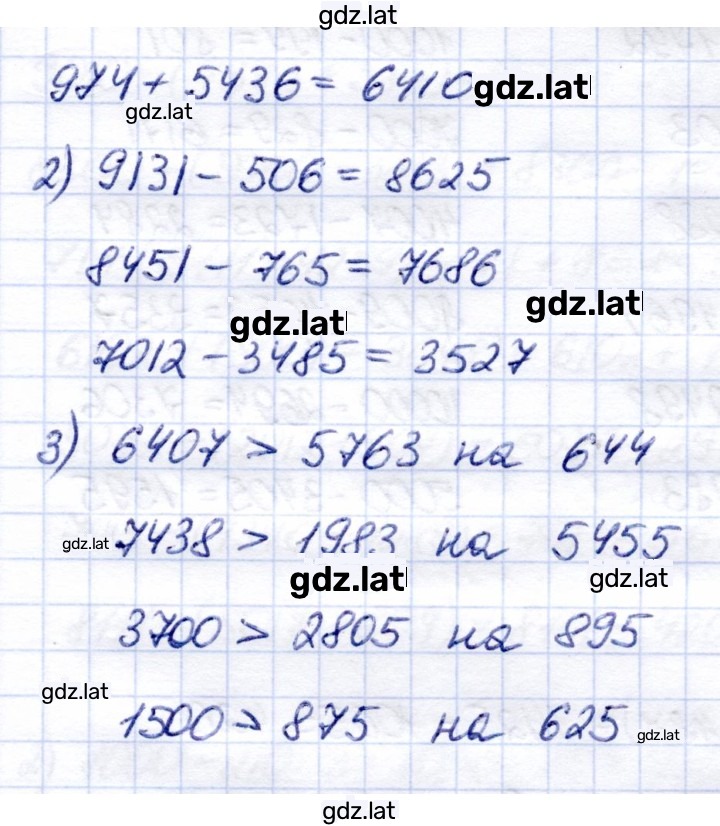 gdz.lat
974 + 5436 = 6410 gdz.lat
gdz.lat
2) 9131 - 506 = 8625
8451 - 765 = 7686
gdz.lat
gdz.lat
7012 - 3485 = 3527
3) 6407 > 5763 на 644
gdz.lat 7438 > 1983 на 5455
gdz.lat gdz.lat
3700 > 2805 на 895
gdz.lat
1500 > 875 на 625 gdz.lat
gdz.lat